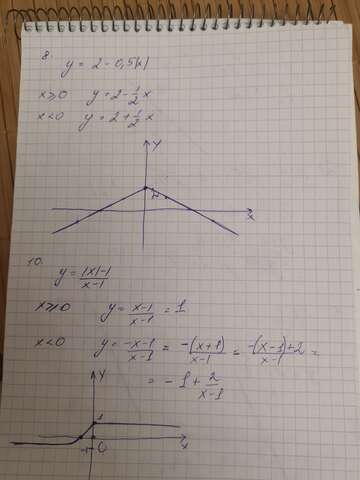 8.
y = 2 - 0,5|x|
x ≥ 0 y = 2 - 1/2 x
x < 0 y = 2 + 1/2 x
y
2
x
10.
y = |x|-1/x-1
x ≥ 0 y = x-1/x-1 = 1
x < 0 y = -x-1/x-1 = -(x+1)/x-1 = -(x-1)+2/x-1 =
= -1 + 2/x-1
y
1
-1 0 x